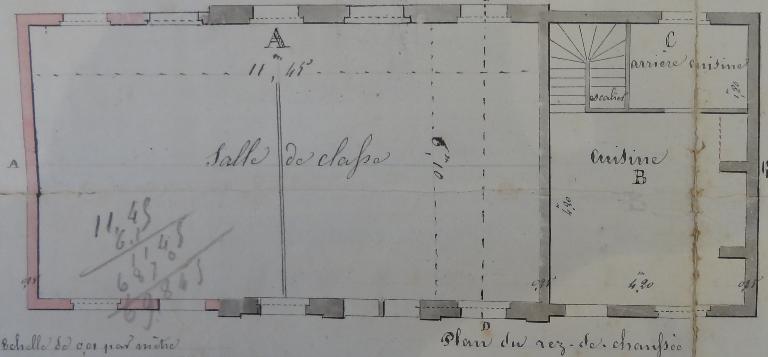 A
11,45
C
arrière cuisine
1,20
escalier
Salle de classe
6,10
cuisine
B
A
4,20
11,45
6.1
11 45
68 70
69.845
0,45
0,45
4,20
0,45
D
Echelle de 0,01 par mètre
Plan du rez-de-chaussée